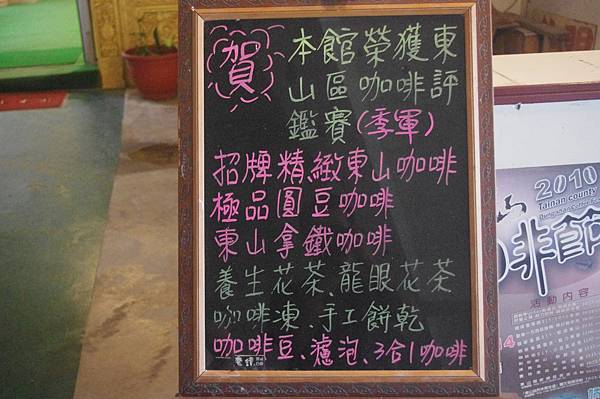 賀
本館榮獲東
山區咖啡評
鑑賽(季軍)
招牌精緻東山咖啡
極品圓豆咖啡
東山拿鐵咖啡
養生花茶、龍眼花茶
咖啡凍、手工餅乾
咖啡豆、濾泡、3合1咖啡
2010
Tainan county
啡節
活動內容